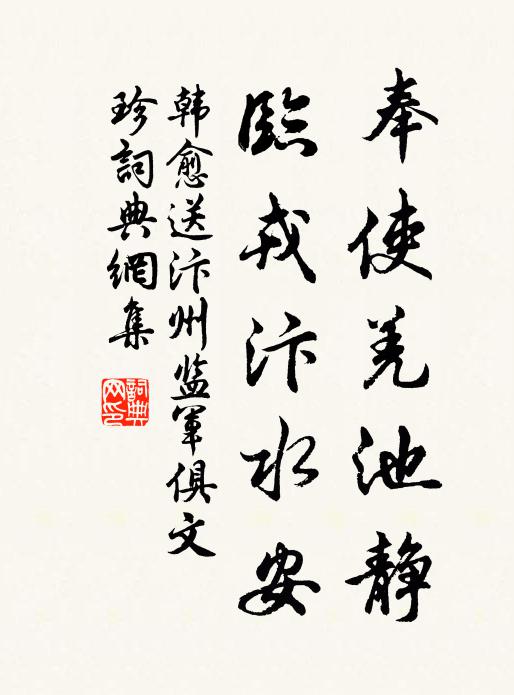 奉使羌池静
臨戎汴水安
韩愈送汴州监軍俱文
珍詞典網集
詞典
网印